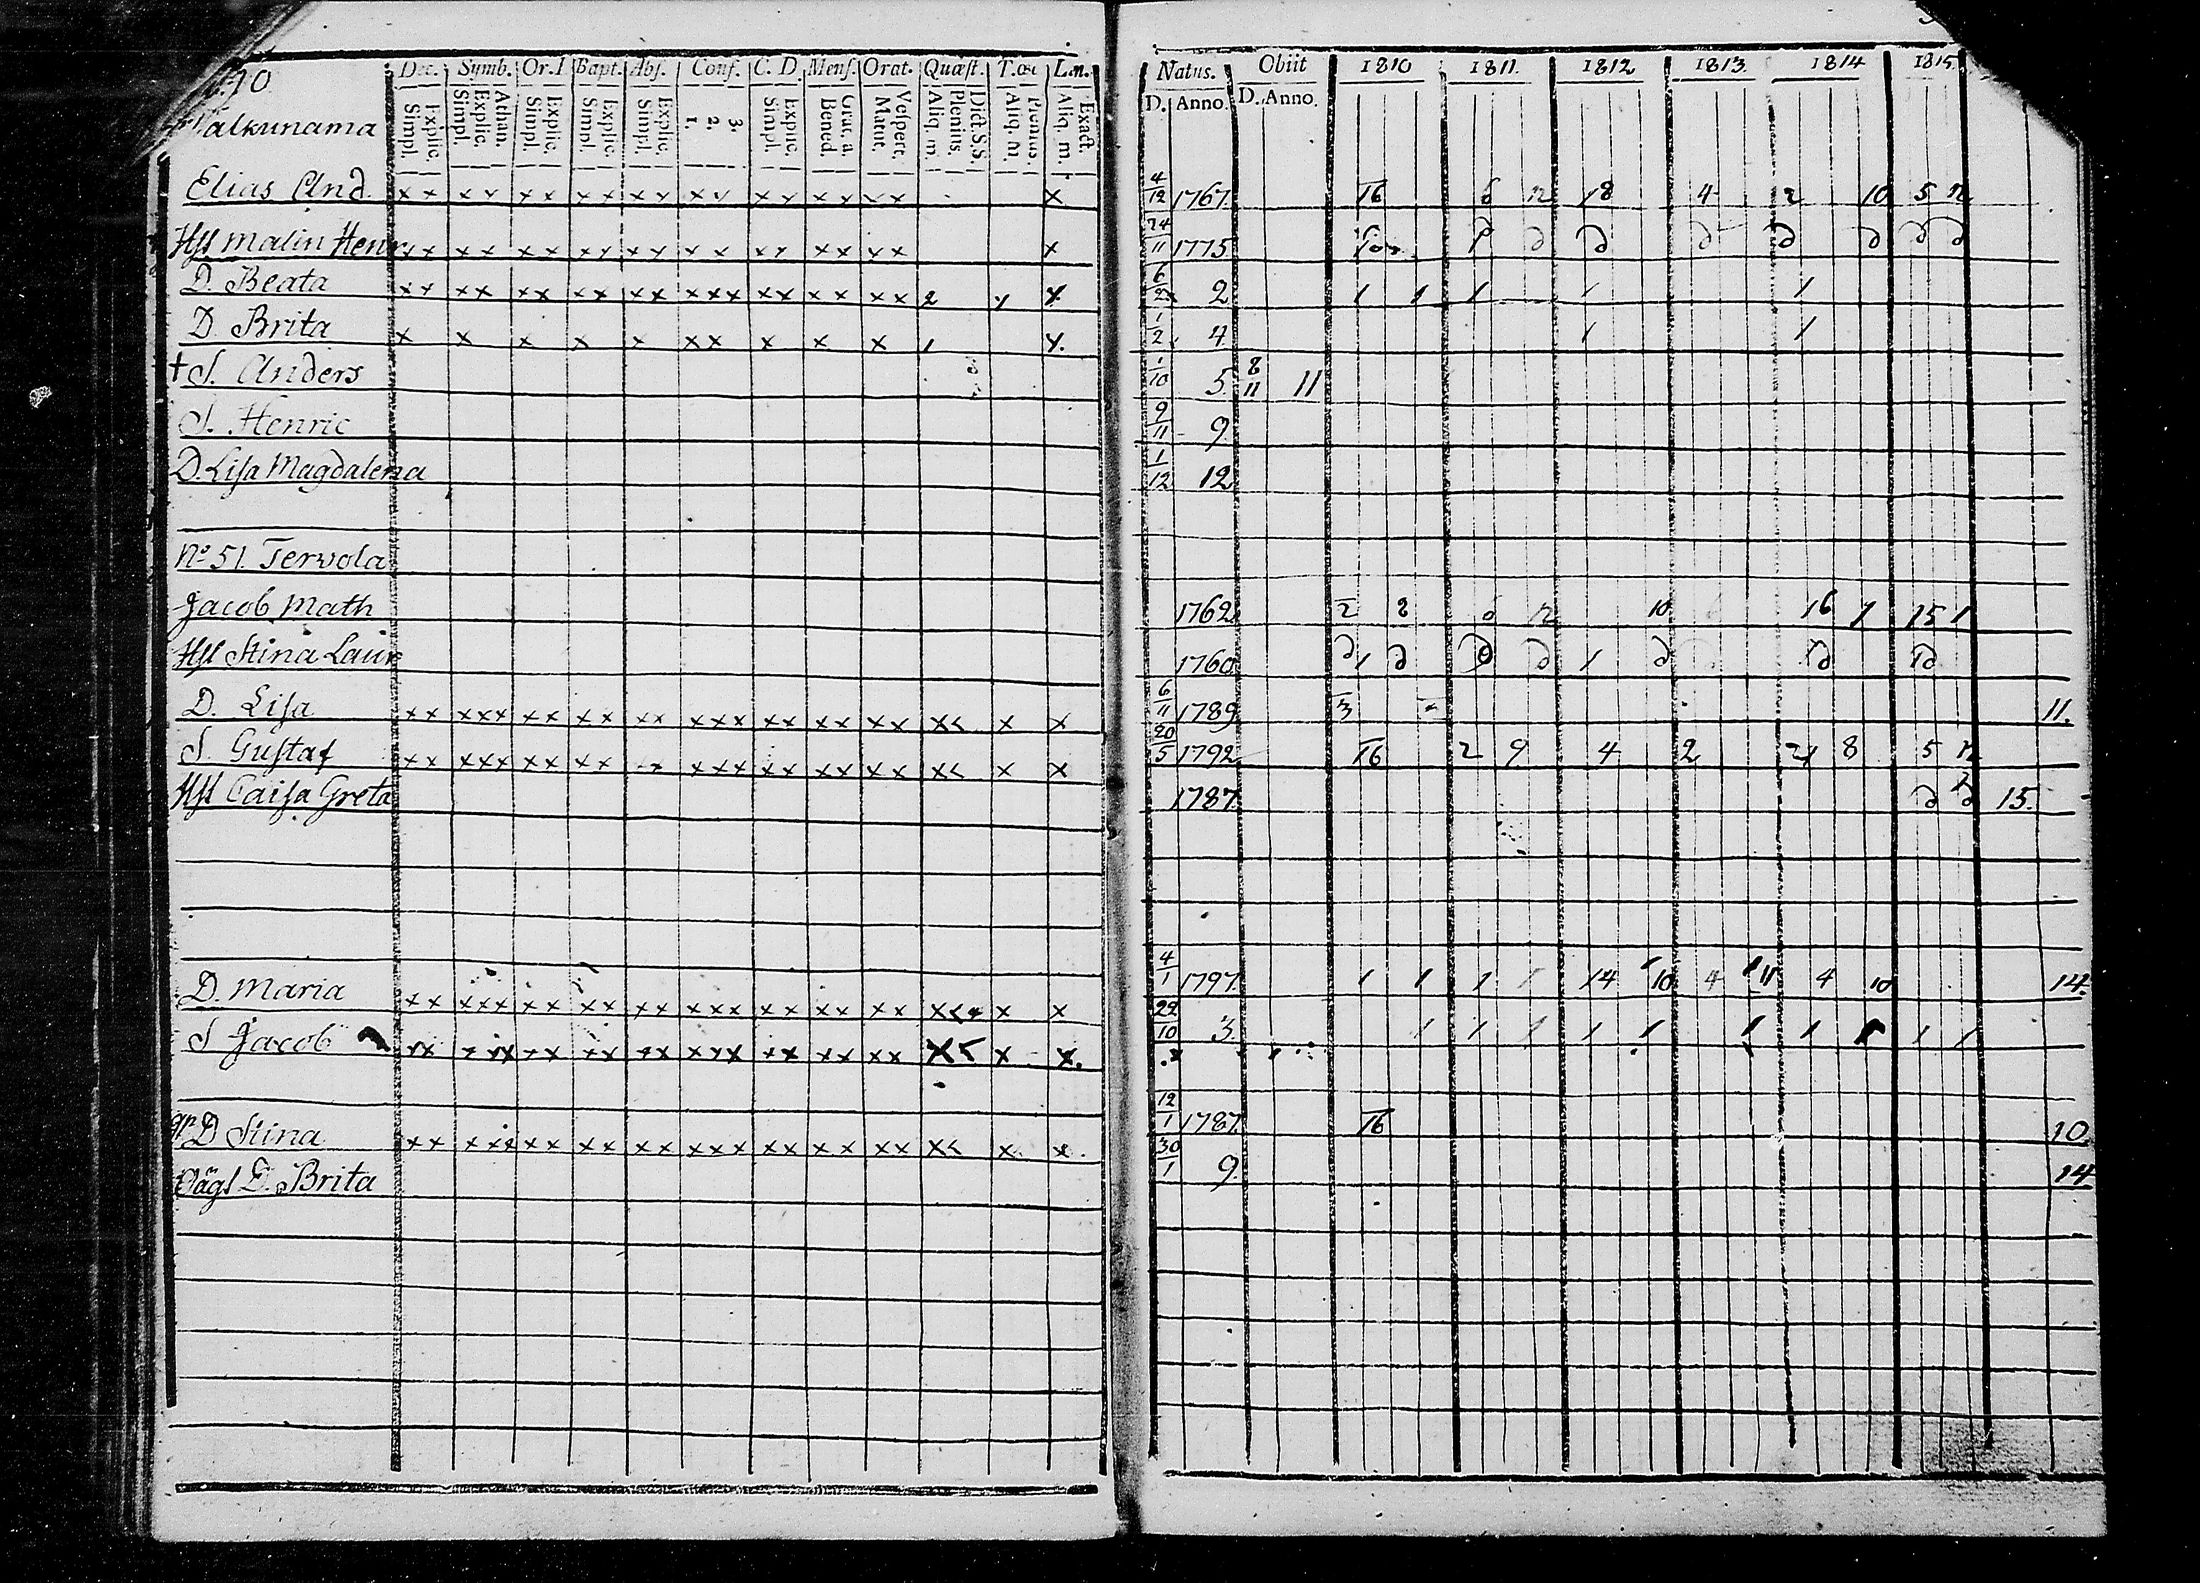 Dec. Symb. Or. D Bapt. Abs. Conf. C. D. Mens. Orat. Quæst. Lin. Natus. Obiit 1810 1811. 1812 1813. 1814 1815.
Explic. Simpl. Athan. Explic. Simpl. Explic. Simpl. Explic. Simpl. Explic. Simpl. 3. 2. 1. Explic. Simpl. Grat. a. Bened. Vespert. Matut. Dict. S.S. Plenius. Aliq. m. Plenius. Aliq. m. Exact. Aliq. m. D. Anno. D. Anno.
Elias And. x x x x x x x x x x x x x x x x x x x 4/12 1767. 16 6 12 18 4 2 10 5 12
Hst Malin Henr x x x x x x x x x x x x x x x x x x x 24/11 1775
D. Beata x x x x x x x x x x x x x x x x x x x 2 x x 6 2 1 1 1 1 1
D Brita x x x x x x x x x x 1 x. 1/2 4 1 1
† S. Anders 1/10 5. 8/11 11
S. Henric 9/11 9
D. Lisa Magdalena 1/12 12
No 51. Tervola
Jacob Math 1762. 2 8 6 12 10 16 1 15 1
Hst Stina Laur 1760
D. Lisa x x x x x x x x x x x x x x x x x x x x x x x x 6/11 1789 3 11.
S. Gustaf x x x x x x x x x x x x x x x x x x x x x x x x 20/5 1792 16 2 9 4 2 21 8 5 12
Hst Caisa Greta 1787 15.
D. Maria x x x x x x x x x x x x x x x x x x x x x x x 4/1 1797. 1 1 1 1 14 10 4 11 4 10 14.
S Jacob x x x x x x x x x x x x x x x x x x x x x x x 29/10 3. 1 1 1 1 1 1 1 1 1 1
D Stina x x x x x x x x x x x x x x x x x x x x x x x 12/1 1787. 16 10.
D. Brita 30/1 9. 14